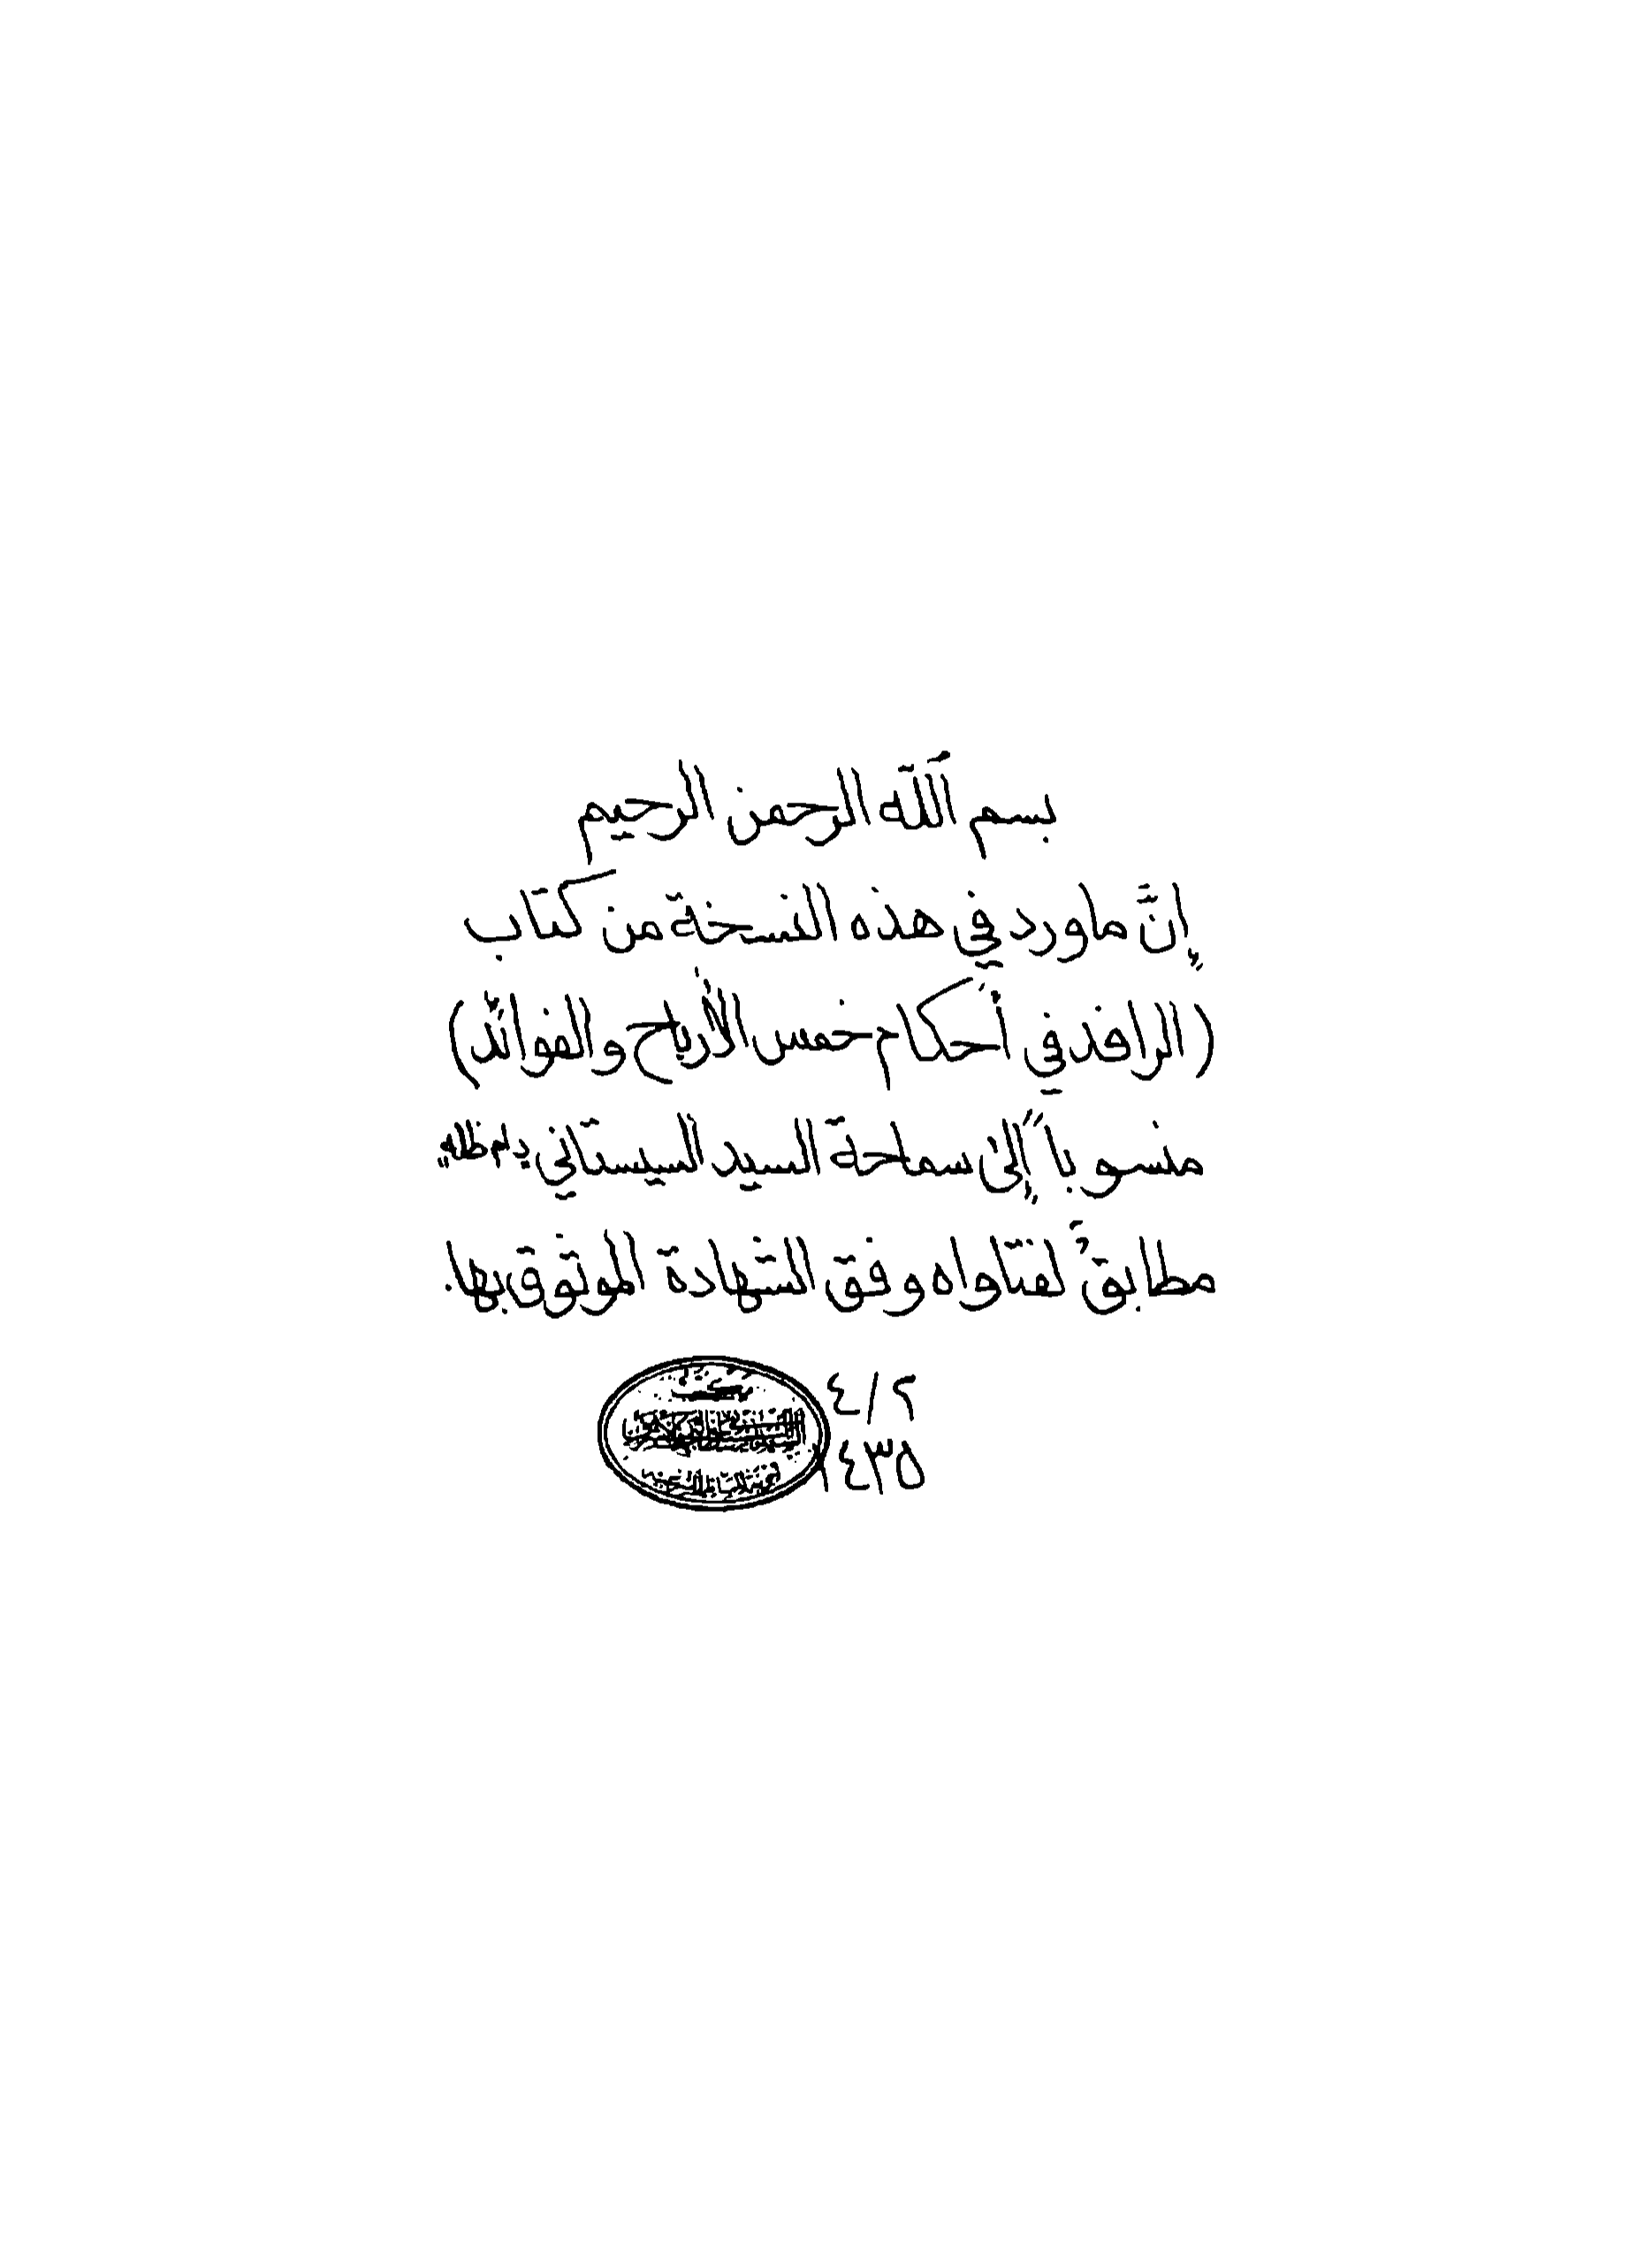 بسم ٱللّه الرحمن الرحيم
إنَّ ما ورد في هذه النسخة من كتاب
(الرافد في أحكام خمس الأرباح والفوائد)
منسوباً إلى سماحة السيد السيستاني دام ظله
مطابقٌ لفتاواه وفق الشهادة الموثوق بها.
٢/٤
١٤٣٥